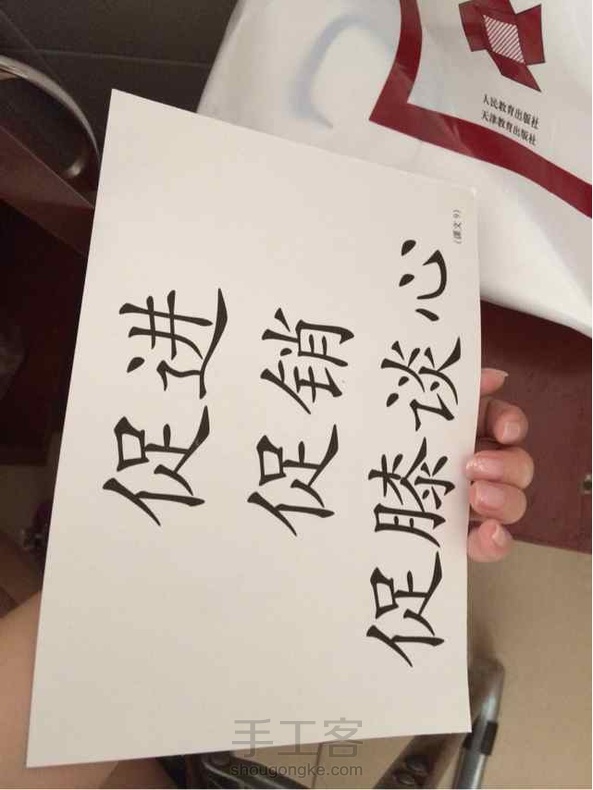 促进
促销
促膝谈心
(课文9)
人民教育出版社
天津教育出版社
手工客
shougongke.com